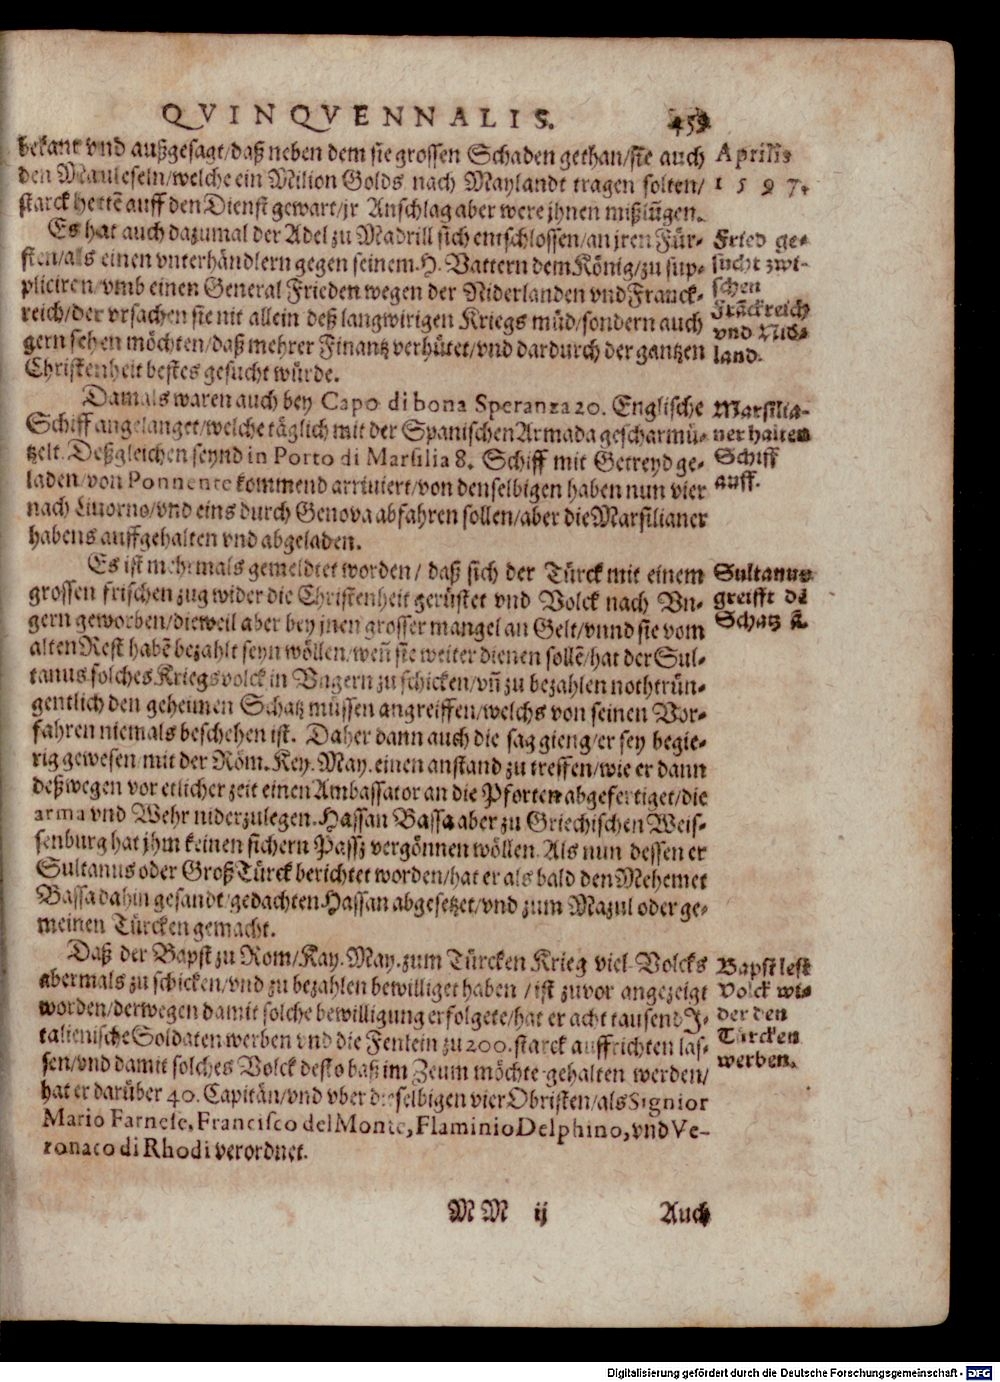 QVINQVENNALIS. 459
bekant vnd außgesagt/daß neben dem sie grossen Schaden gethan/sie auch
den Mauleseln/welche ein Milion Golds nach Maylandt tragen solten/
starck hettē auff den Dienst gewart/jr Anschlag aber were jhnen mißlūgen.
Aprilis
1597.
Es hat auch dazumal der Adel zu Madrill sich entschlossen/an jren Für-
sten/als einen vnterhändlern gegen seinem H. Vattern dem König/zu sup-
pliciren/vmb einen General Frieden wegen der Niderlanden vnd Franck-
reich/der vrsachen sie nit allein deß langwirigen Kriegs müd/sondern auch
gern sehen möchten/daß mehrer Finantz verhütet/vnd dardurch der gantzen
Christenheit bestes gesucht würde.
Fried ge-
sucht zwi-
schen
Frāckreich
vnd Nid-
land.
Damals waren auch bey Capo di bona Speranza 20. Englische
Schiff angelanget/welche täglich mit der Spanischen Armada gescharmü-
tzelt. Deßgleichen seynd in Porto di Marsilia 8. Schiff mit Getreyd ge-
laden/von Ponnente kommend arriuiert/von denselbigen haben nun vier
nach Liuorno/vnd eins durch Genova abfahren sollen/aber die Marsilianer
habens auffgehalten vnd abgeladen.
Marsilia-
ner halten
Schiff
auff.
Es ist mehrmals gemeldtet worden/ daß sich der Türck mit einem
grossen frischen zug wider die Christenheit gerüstet vnd Volck nach Vn-
gern geworben/dieweil aber bey jnen grosser mangel an Gelt/vnnd sie vom
alten Rest habē bezahlt seyn wöllen/weñ sie weiter dienen sollē/hat der Sul-
tanus solches Kriegsvolck in Vngern zu schicken/vñ zu bezahlen nothtrün-
gentlich den geheimen Schatz müssen angreiffen/welchs von seinen Vor-
fahren niemals beschehen ist. Daher dann auch die sag gieng/er sey begie-
rig gewesen mit der Röm. Key. May. einen anstand zu treffen/wie er dann
deßwegen vor etlicher zeit einen Ambassator an die Pforten abgefertiget/die
arma vnd Wehr niderzulegen. Hassan Bassa aber zu Griechischen Weis-
senburg hat jhm keinen sichern Passz vergönnen wöllen. Als nun dessen er
Sultanus oder Groß Türck berichtet worden/hat er als bald den Mehemet
Bassa dahin gesandt/gedachten Hassan abgesetzet/vnd zum Mazul oder ge-
meinen Türcken gemacht.
Sultanus
greifft dē
Schatz ā.
Daß der Bapst zu Rom/Kay. May. zum Türcken Krieg viel Volcks
abermals zu schicken/vnd zu bezahlen bewilliget haben/ist zuvor angezeigt
worden/derwegen damit solche bewilligung erfolgete/hat er acht tausend J-
talienische Soldaten werben vnd die Fenlein zu 200. starck auffrichten las-
sen/vnd damit solches Volck desto baß im Zeum möchte gehalten werden/
hat er darüber 40. Capitän/vnd vber dieselbigen vier Obristen/als Signior
Mario Farnese, Francisco del Monte, Flaminio Delphino, vnd Ve-
ronaco di Rhodi verordnet.
Bapst lest
Volck wi-
der den
Türcken
werben.
MM ij Auch
Digitalisierung gefördert durch die Deutsche Forschungsgemeinschaft - DFG